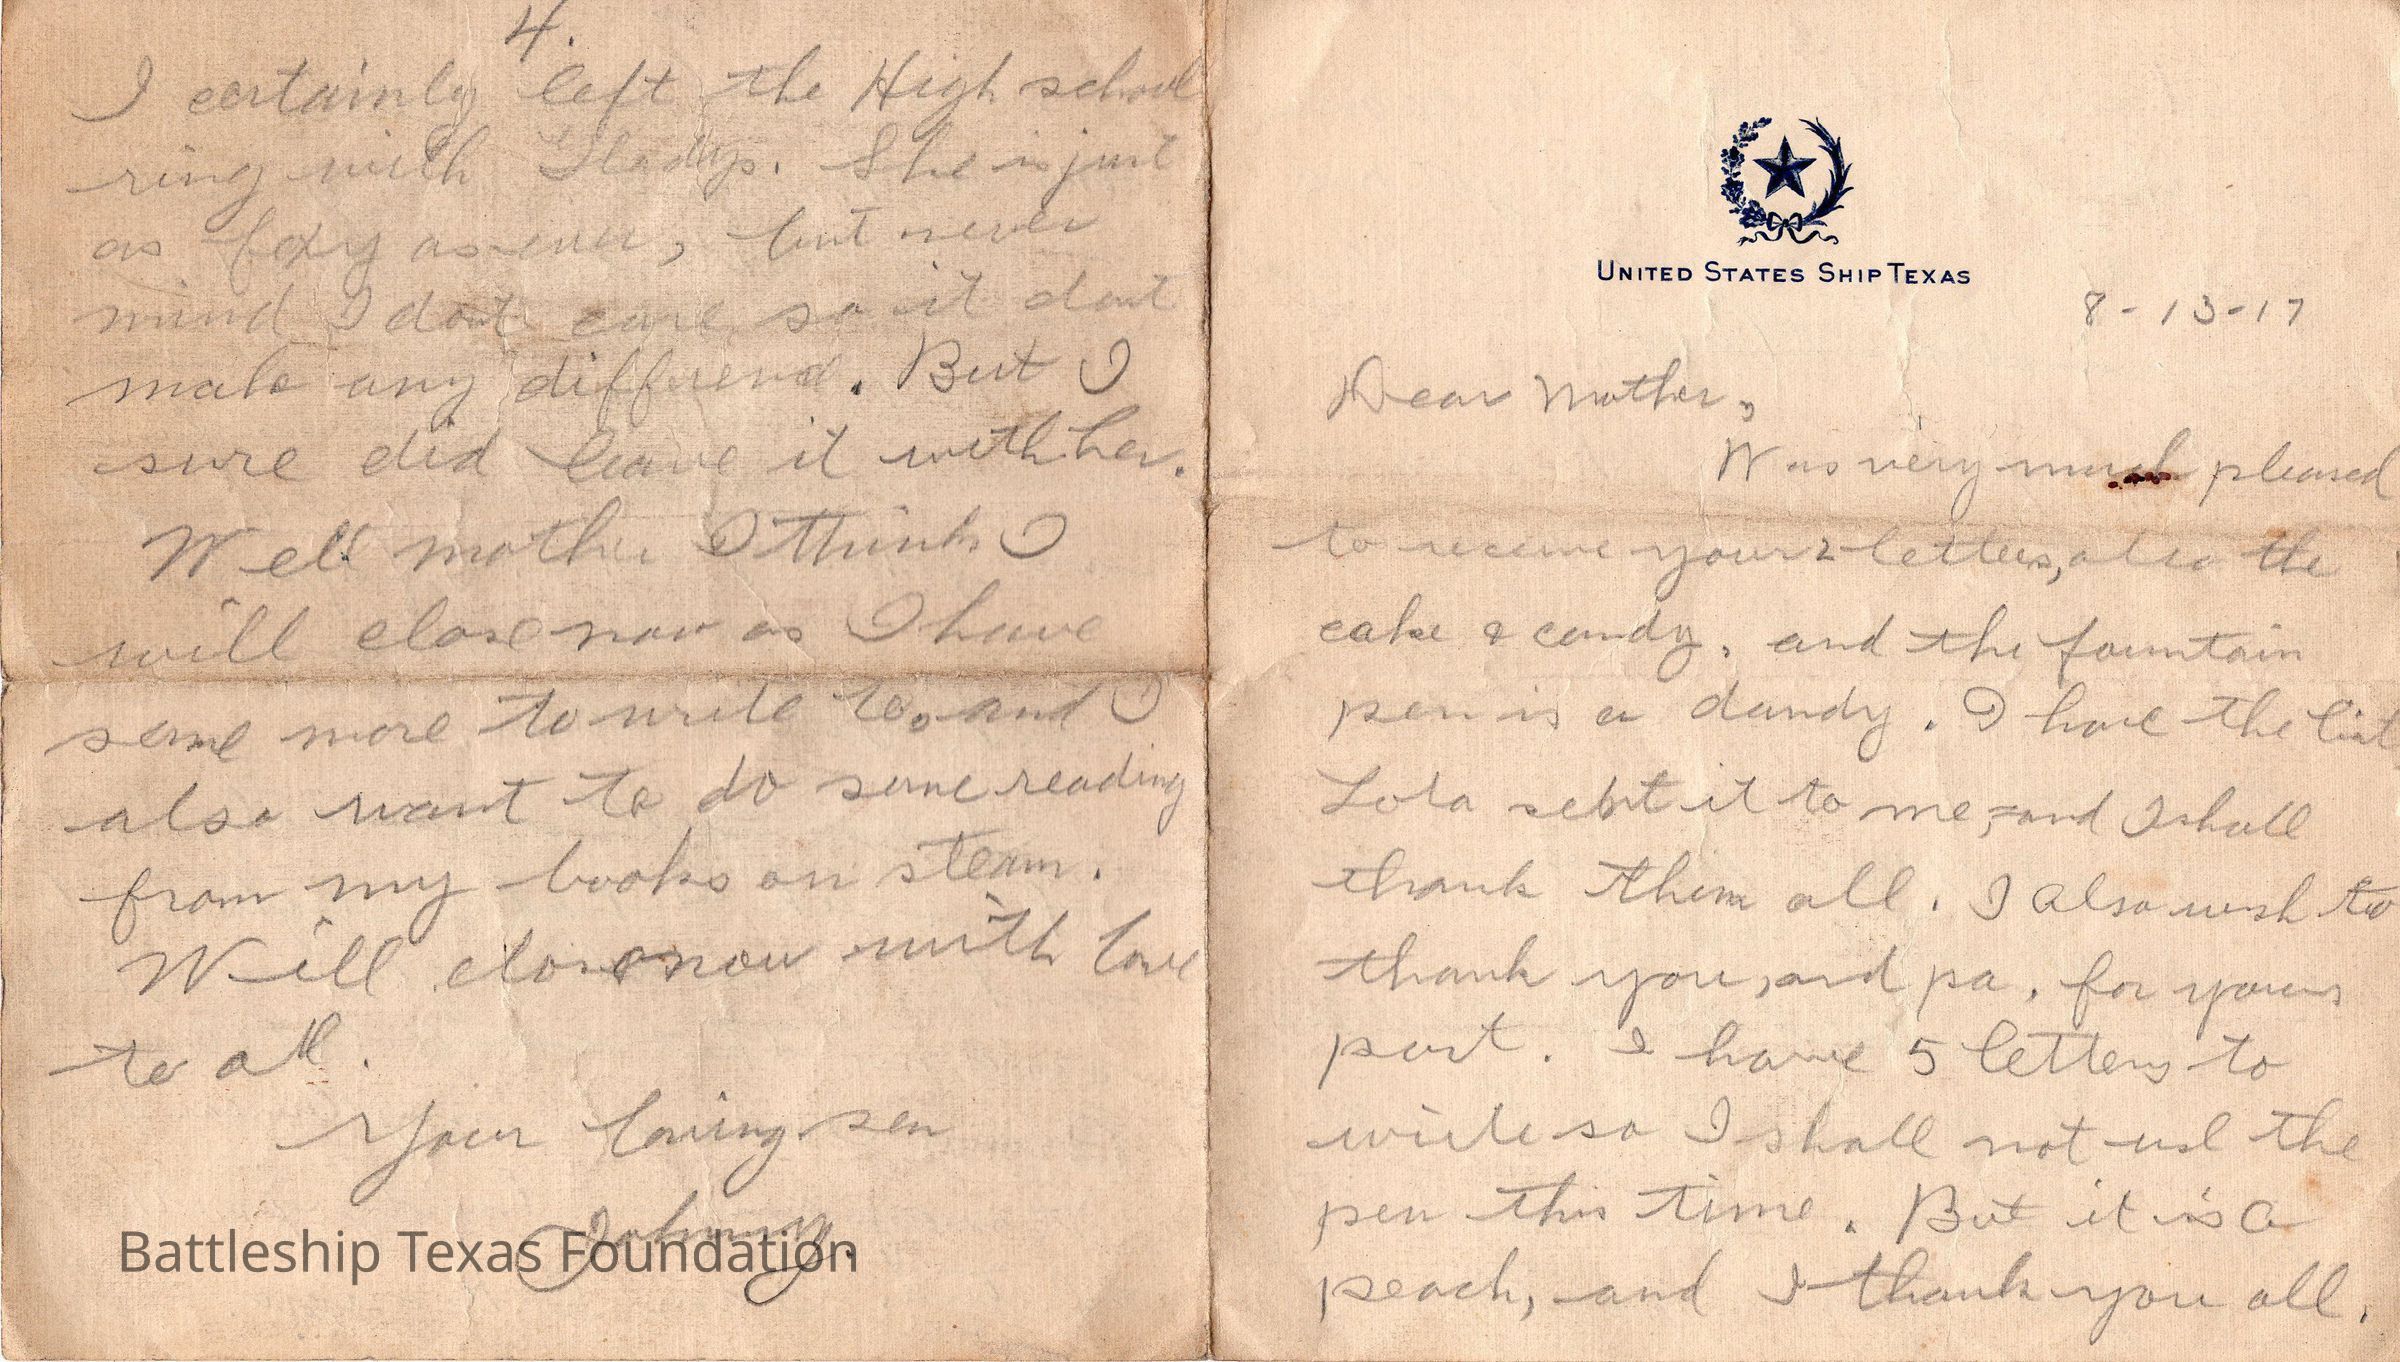 4.
I certainly left the High school
ring with Gladys. She is just
as foxy as ever, but never
mind I dont care so it dont
make any diffrence. But I
sure did leave it with her.
Well mother I think I
will close now as I have
some more to write to, and I
also want to do some reading
from my books on steam.
Will close now with love
to all.
Your loving son
Johnny.
Battleship Texas Foundation
UNITED STATES SHIP TEXAS
8-13-17
Dear Mother,
Was very much pleased
to receive your 2 letters, also the
cake & candy, and the fountain
pen is a dandy. I have the list
Lola sent it to me, and I shall
thank them all. I also wish to
thank you, and pa, for yours
part. I have 5 letters to
write so I shall not use the
pen this time. But it is a
peach, and I thank you all.